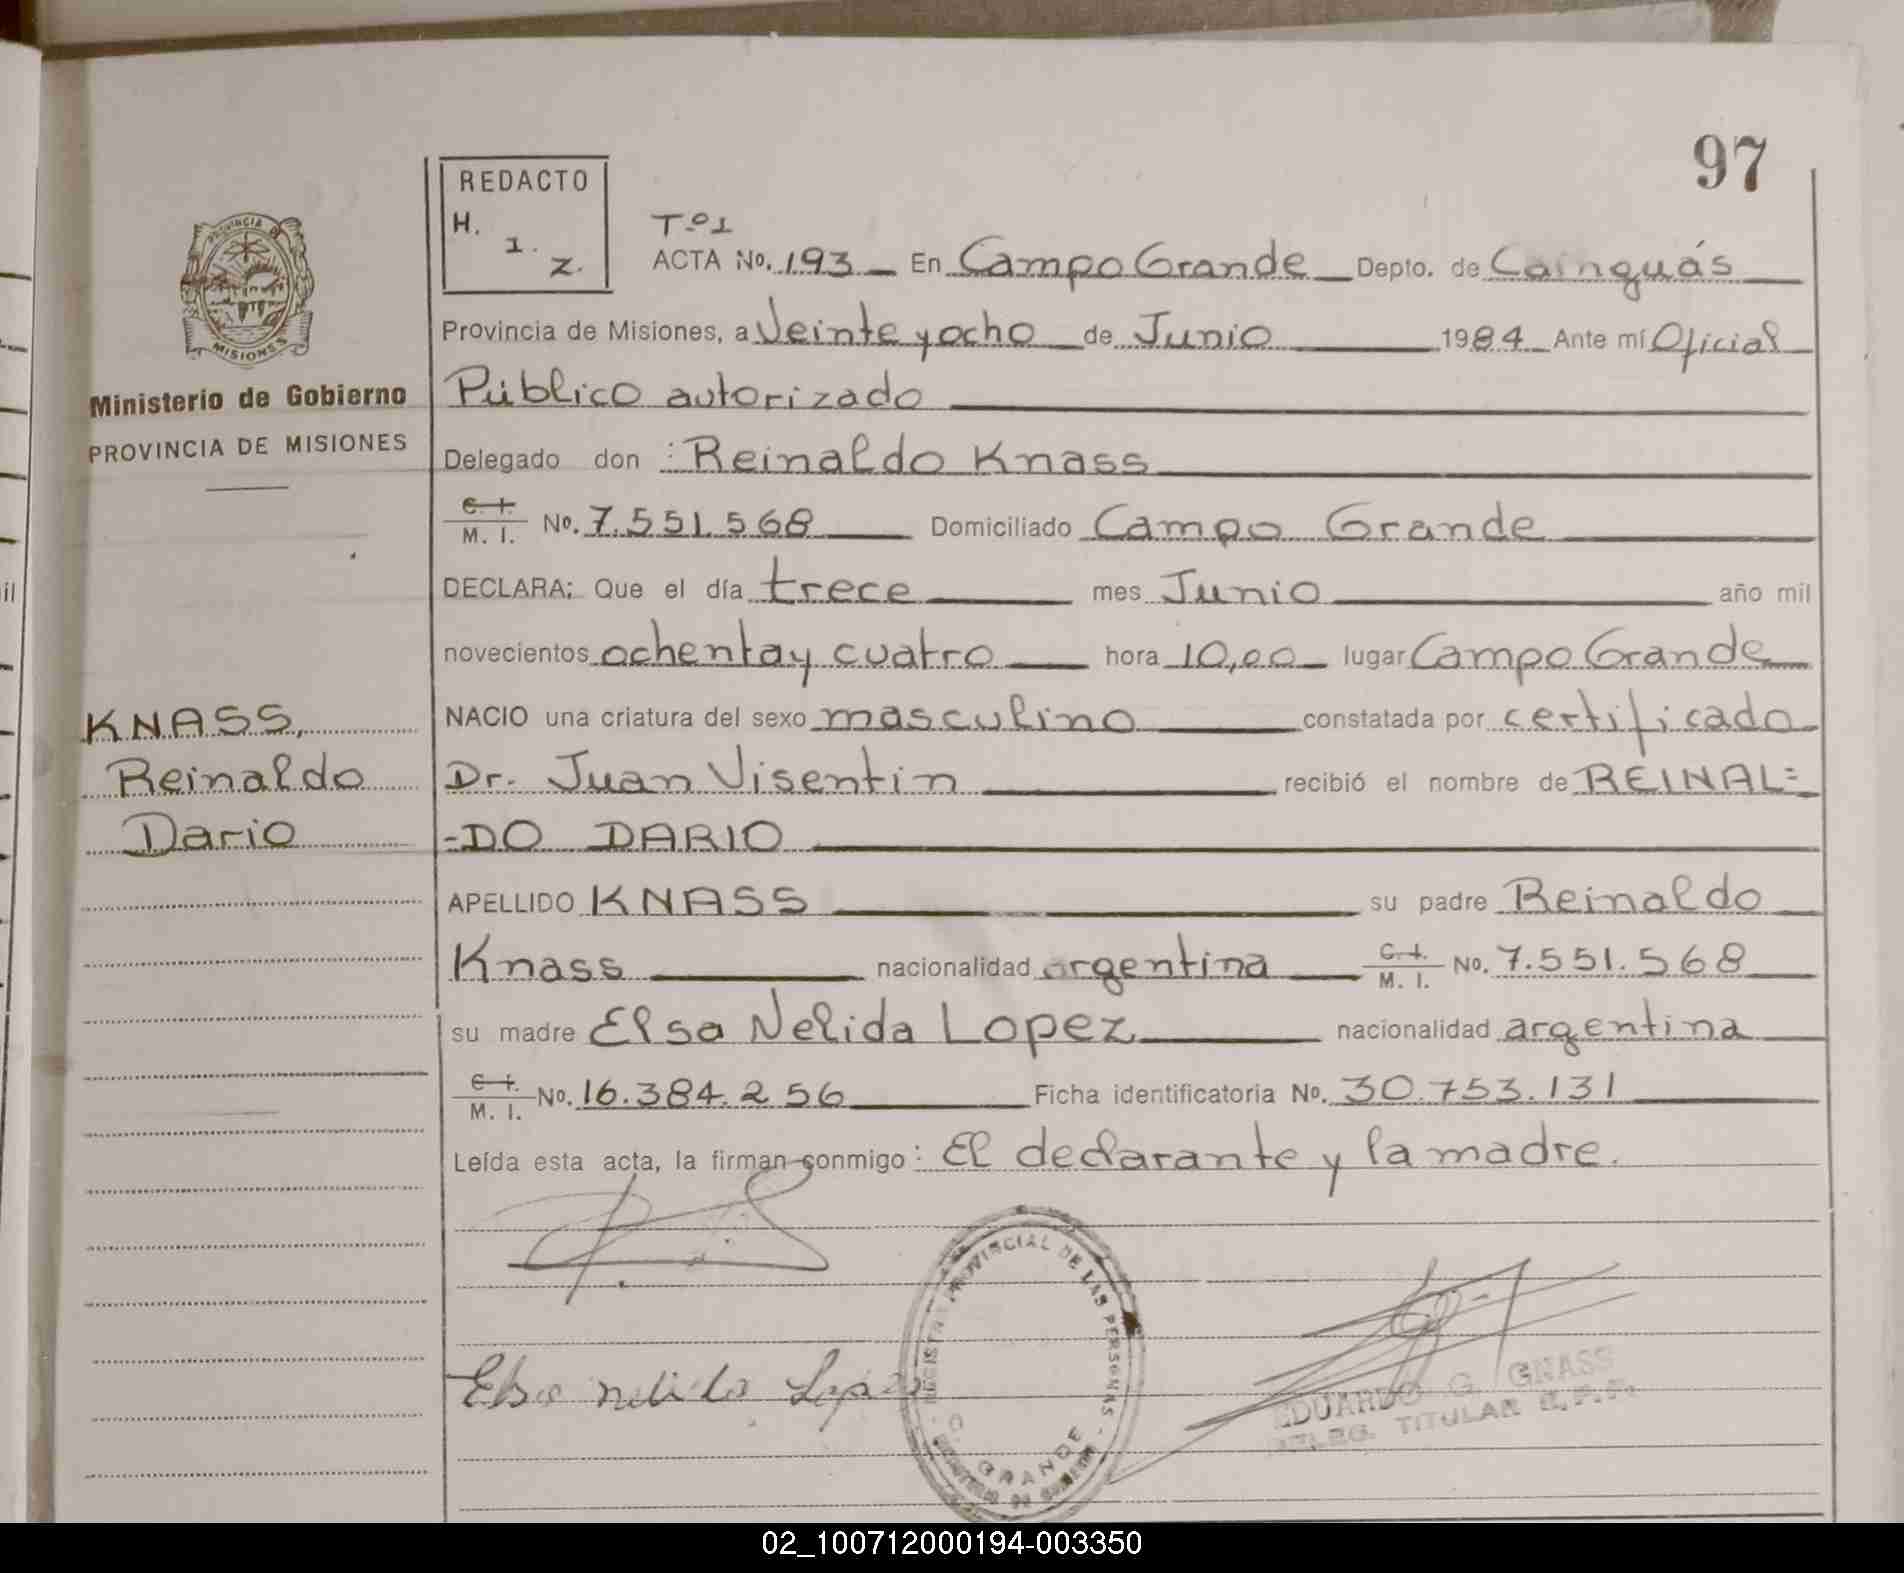 97
REDACTO
H.
1.
Z.
PROVINCIA DE
MISIONES
Ministerio de Gobierno
PROVINCIA DE MISIONES
Tº1
ACTA Nº. 193 En Campo Grande Depto. de Cainguás
Provincia de Misiones, a Veinte y ocho de Junio 1984 Ante mí Oficial
Público autorizado
Delegado don : Reinaldo Knass
C. I.
M. I. Nº. 7.551.568 Domiciliado Campo Grande
DECLARA; Que el día trece mes Junio año mil
novecientos ochenta y cuatro hora 10,00 lugar Campo Grande
NACIO una criatura del sexo masculino constatada por certificado
Dr. Juan Visentin recibió el nombre de REINAL=
-DO DARIO
KNASS,
Reinaldo
Dario
APELLIDO KNASS su padre Reinaldo
Knass nacionalidad argentina C. I. M. I. Nº. 7.551.568
su madre Elsa Nelida Lopez nacionalidad argentina
C. I.
M. I. Nº. 16.384.256 Ficha identificatoria Nº. 30.753.131
Leída esta acta, la firman conmigo: El declarante y la madre.
Elsa nelida Lopez
PROVINCIAL DE LAS PERSONAS
GRANDE
EDUARDO G. GNASS
DELEG. TITULAR
il
02_100712000194-003350